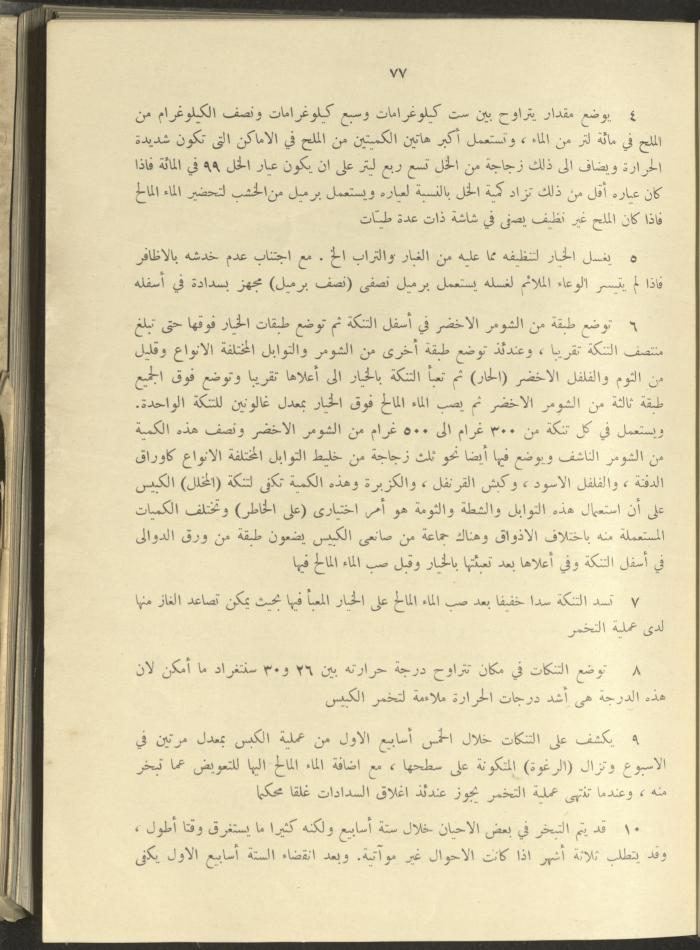 ٧٧
٤ يوضع مقدار يتراوح بين ست كيلوغرامات وسبع كيلوغرامات ونصف الكيلوغرام من
الملح في مائة لتر من الماء ، وتستعمل أكبر هاتين الكميتين من الملح في الاماكن التى تكون شديدة
الحرارة ويضاف الى ذلك زجاجة من الخل تسع ربع ليتر على ان يكون عيار الخل ٩٩ في المائة فاذا
كان عياره أقل من ذلك تزاد كمية الخل بالنسبة لعياره ويستعمل برميل من الخشب لتحضير الماء المالح
فاذا كان الملح غير نظيف يصفى في شاشة ذات عدة طيّات
٥ يغسل الخيار لتنظيفه مما عليه من الغبار والتراب الخ . مع اجتناب عدم خدشه بالاظافر
فاذا لم يتيسر الوعاء الملائم لغسله يستعمل برميل نصفى (نصف برميل) مجهز بسدادة في أسفله
٦ توضع طبقة من الشومر الاخضر في أسفل التنكة ثم توضع طبقات الخيار فوقها حتى تبلغ
منتصف التنكة تقريبا ، وعندئذ توضع طبقة أخرى من الشومر والتوابل المختلفة الانواع وقليل
من الثوم والفلفل الاخضر (الحار) ثم تعبأ التنكة بالخيار الى أعلاها تقريبا وتوضع فوق الجميع
طبقة ثالثة من الشومر الاخضر ثم يصب الماء المالح فوق الخيار بمعدل غالونين للتنكة الواحدة.
ويستعمل في كل تنكة من ٣٠٠ غرام الى ٥٠٠ غرام من الشومر الاخضر ونصف هذه الكمية
من الشومر الناشف ويوضع فيها أيضا نحو ثلث زجاجة من خليط التوابل المختلفة الانواع كاوراق
الدفنة ، والفلفل الاسود ، وكبش القرنفل ، والكزبرة وهذه الكمية تكفى لتنكة (المخلل) الكبيس
على أن استعمال هذه التوابل والشطة والثومة هو أمر اختيارى (على الخاطر) وتختلف الكميات
المستعملة منه باختلاف الاذواق وهناك جماعة من صانعى الكبيس يضعون طبقة من ورق الدوالى
في أسفل التنكة وفي أعلاها بعد تعبئتها بالخيار وقبل صب الماء المالح فيها
٧ تسد التنكة سدا خفيفا بعد صب الماء المالح على الخيار المعبأ فيها بحيث يمكن تصاعد الغاز منها
لدى عملية التخمر
٨ توضع التنكات في مكان تتراوح درجة حرارته بين ٢٦ و٣٠ سنتغراد ما أمكن لان
هذه الدرجة هى أشد درجات الحرارة ملاءمة لتخمر الكبيس
٩ يكشف على التنكات خلال الخمس أسابيع الاول من عملية الكبس بمعدل مرتين في
الاسبوع وتزال (الرغوة) المتكونة على سطحها ، مع اضافة الماء المالح اليها للتعويض عما تبخر
منه ، وعندما تنتهى عملية التخمر يجوز عندئذ اغلاق السدادات غلقا محكما
١٠ قد يتم التبخر في بعض الاحيان خلال ستة أسابيع ولكنه كثيرا ما يستغرق وقتا أطول ،
وقد يتطلب ثلاثة أشهر اذا كانت الاحوال غير موآتية. وبعد انقضاء الستة أسابيع الاول يكفى